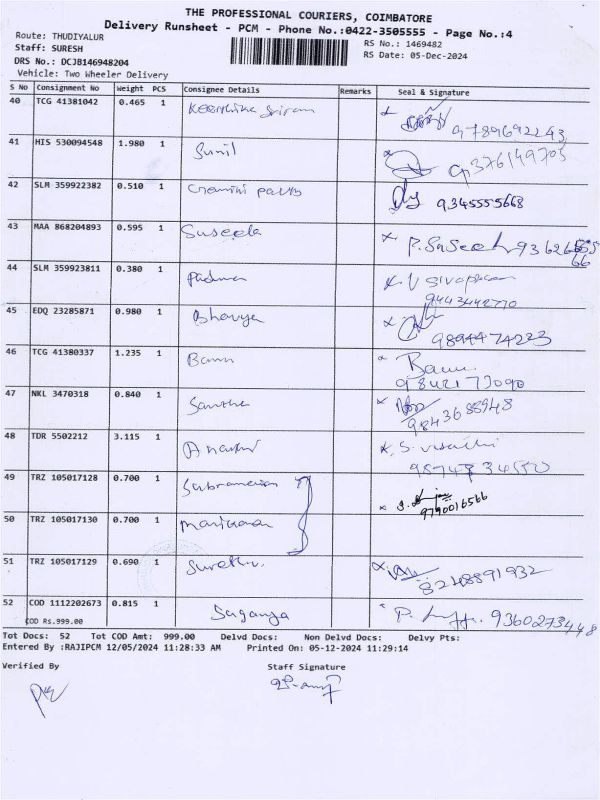 THE PROFESSIONAL COURIERS, COIMBATORE
Delivery Runsheet - PCM - Phone No.:0422-3505555 - Page No.:4
Route: THUDIYALUR
RS No.: 1469482
Staff: SURESH
RS Date: 05-Dec-2024
DRS No.: DCJB146948204
Vehicle: Two Wheeler Delivery
S No Consignment No Weight PCS Consignee Details Remarks Seal & Signature
40 TCG 41381042 0.465 1 Keerthika Sriram 9789692243
41 HIS 530094548 1.980 1 Sunil 9376149705
42 SLM 359922382 0.510 1 Gemini 9345555668
43 MAA 868204893 0.595 1 Suseela P.Suseela
44 SLM 359923811 0.380 1 Padma 9443442770
45 EDQ 23285871 0.980 1 Bhavya 9894474223
46 TCG 41380337 1.235 1 Banu Banu
9842173090
47 NKL 3470318 0.840 1 Santha 9843688948
48 TDR 5502212 3.115 1 Anandhi
49 TRZ 105017128 0.700 1 Subramanian 9790016566
50 TRZ 105017130 0.700 1
51 TRZ 105017129 0.690 1 8248891932
52 COD 1112202673 0.815 1 Saganya 9360273448
COD RS.999.00
Tot Docs: 52 Tot COD Amt: 999.00 Delvd Docs: Non Delvd Docs: Delvy Pts:
Entered By :RAJIPCM 12/05/2024 11:28:33 AM Printed On: 05-12-2024 11:29:14
Verified By Staff Signature